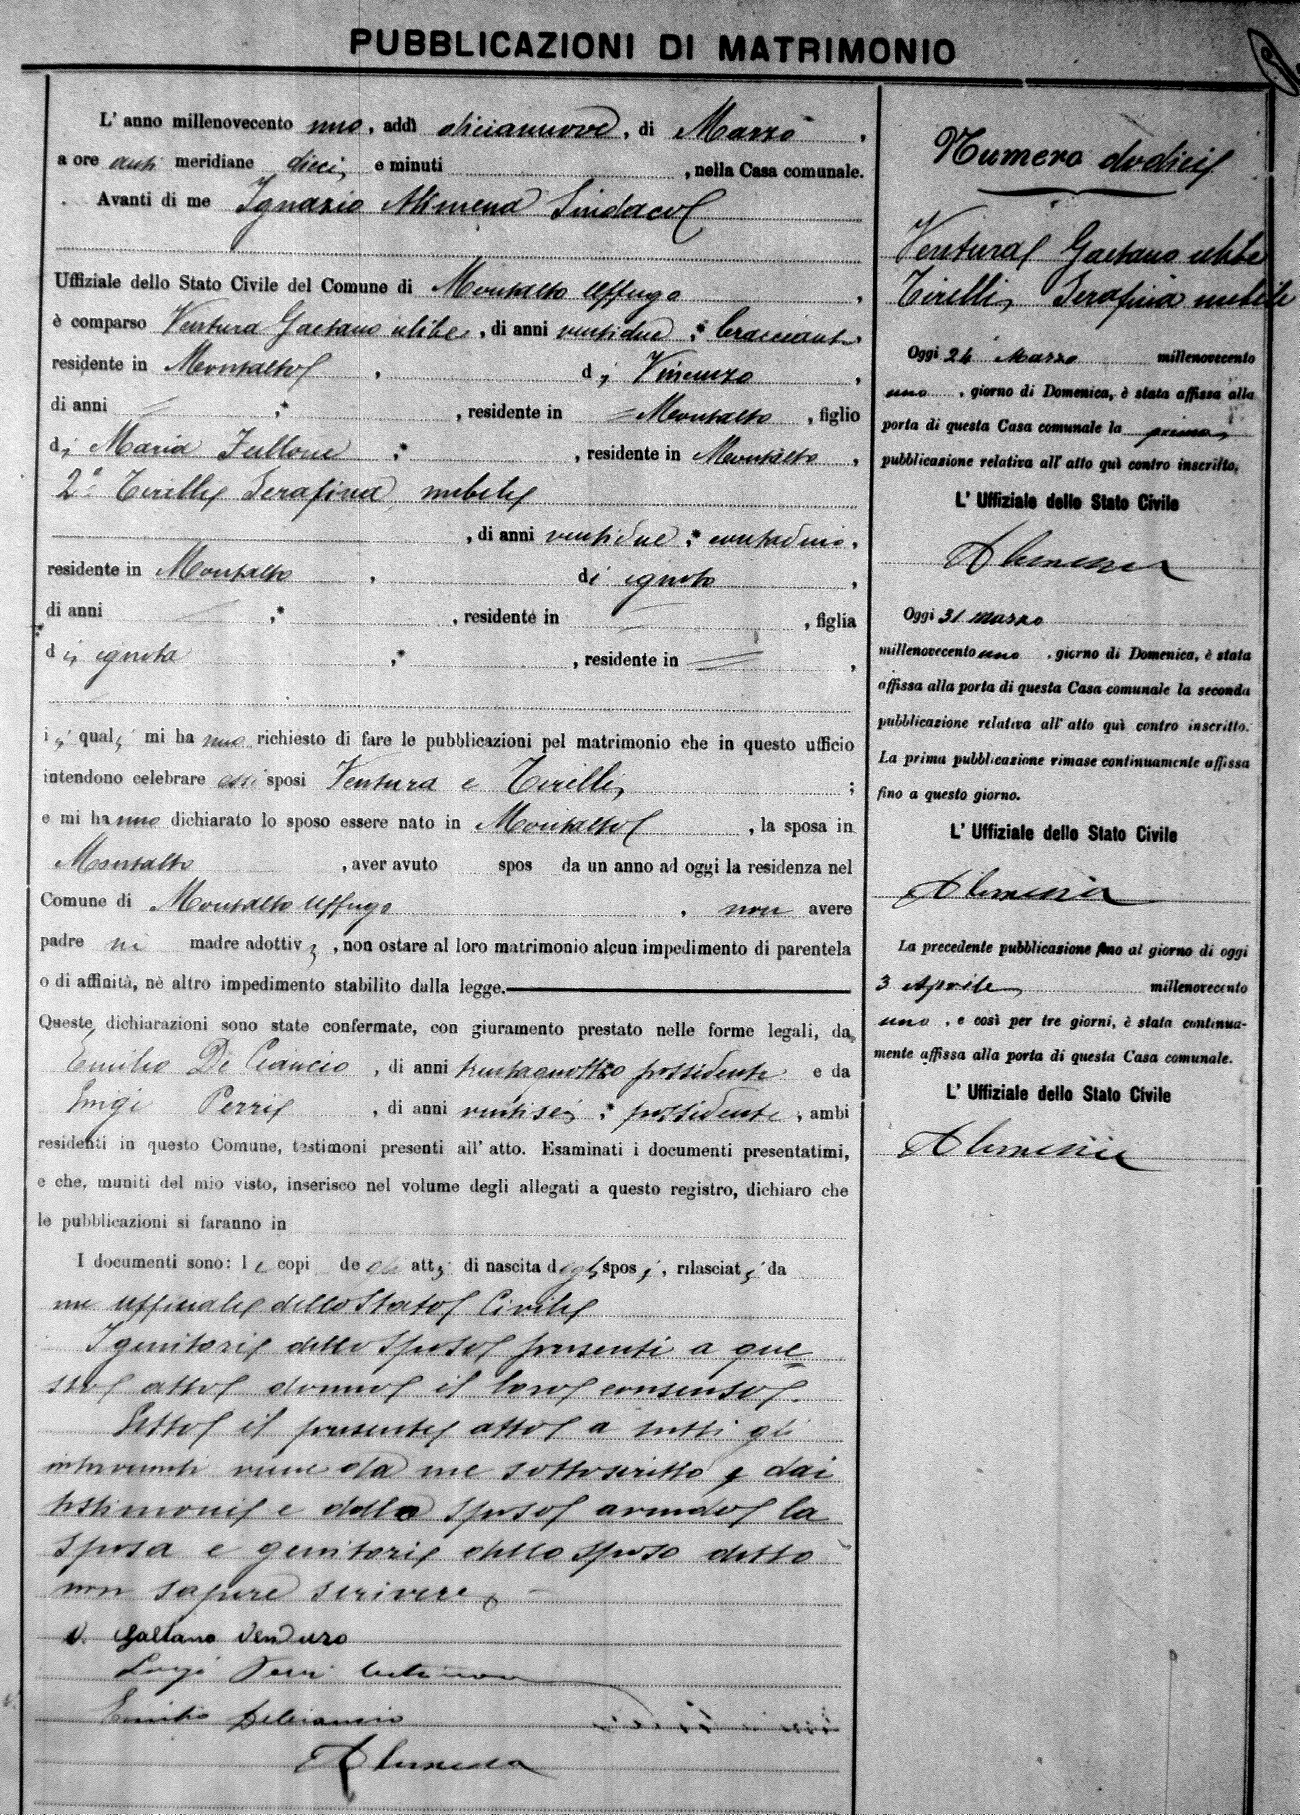 PUBBLICAZIONI DI MATRIMONIO
L' anno millenovecento uno, addì diciannove, di Marzo,
a ore anti meridiane dieci, e minuti , nella Casa comunale.
Avanti di me Ignazio Alimena Sindaco
Uffiziale dello Stato Civile del Comune di Montalto Uffugo,
è comparso Ventura Gaetano celibe, di anni ventidue, bracciante,
residente in Montalto, di Vincenzo,
di anni , residente in Montalto, figlio
di Maria Fullone, residente in Montalto,
2° Tirelli Serafina nubile
, di anni ventidue, contadina,
residente in Montalto, di ignoto,
di anni , residente in , figlia
di ignota, residente in ,
i quali mi hanno richiesto di fare le pubblicazioni pel matrimonio che in questo ufficio
intendono celebrare essi sposi Ventura e Tirelli;
e mi hanno dichiarato lo sposo essere nato in Montalto, la sposa in
Montalto, aver avuto spos da un anno ad oggi la residenza nel
Comune di Montalto Uffugo, non avere
padre nè madre adottivi, non ostare al loro matrimonio alcun impedimento di parentela
o di affinità, nè altro impedimento stabilito dalla legge.
Queste dichiarazioni sono state confermate, con giuramento prestato nelle forme legali, da
Emilio De Ciancio, di anni possidente e da
Luigi Perri, di anni ventisei, possidente, ambi
residenti in questo Comune, testimoni presenti all' atto. Esaminati i documenti presentatimi,
e che, muniti del mio visto, inserisco nel volume degli allegati a questo registro, dichiaro che
le pubblicazioni si faranno in
I documenti sono: le copi degli atti di nascita degli sposi, rilasciati da
me uffiziale dello Stato Civile
I genitori dello sposo presenti a que=
sto atto danno il loro consenso.
Letto il presente atto a tutti gli
intervenuti viene da me sottoscritto e dai
testimoni e dallo sposo avendo la
sposa e genitori dello sposo detto
non sapere scrivere
Gaetano Venturo
Luigi Perri testimone
Emilio Deciancio
Alimena
Numero dodici
Ventura Gaetano celibe
Tirelli Serafina nubile
Oggi 24 Marzo millenovecento
uno, giorno di Domenica, è stata affissa alla
porta di questa Casa comunale la prima
pubblicazione relativa all' atto quì contro inscritto.
L' Uffiziale dello Stato Civile
Alimena
Oggi 31 marzo
millenovecento uno, giorno di Domenica, è stata
affissa alla porta di questa Casa comunale la seconda
pubblicazione relativa all' atto quì contro inscritto.
La prima pubblicazione rimase continuamente affissa
fino a questo giorno.
L' Uffiziale dello Stato Civile
Alimena
La precedente pubblicazione fino al giorno di oggi
3 Aprile millenovecento
uno, e così per tre giorni, è stata continua-
mente affissa alla porta di questa Casa comunale.
L' Uffiziale dello Stato Civile
Alimena